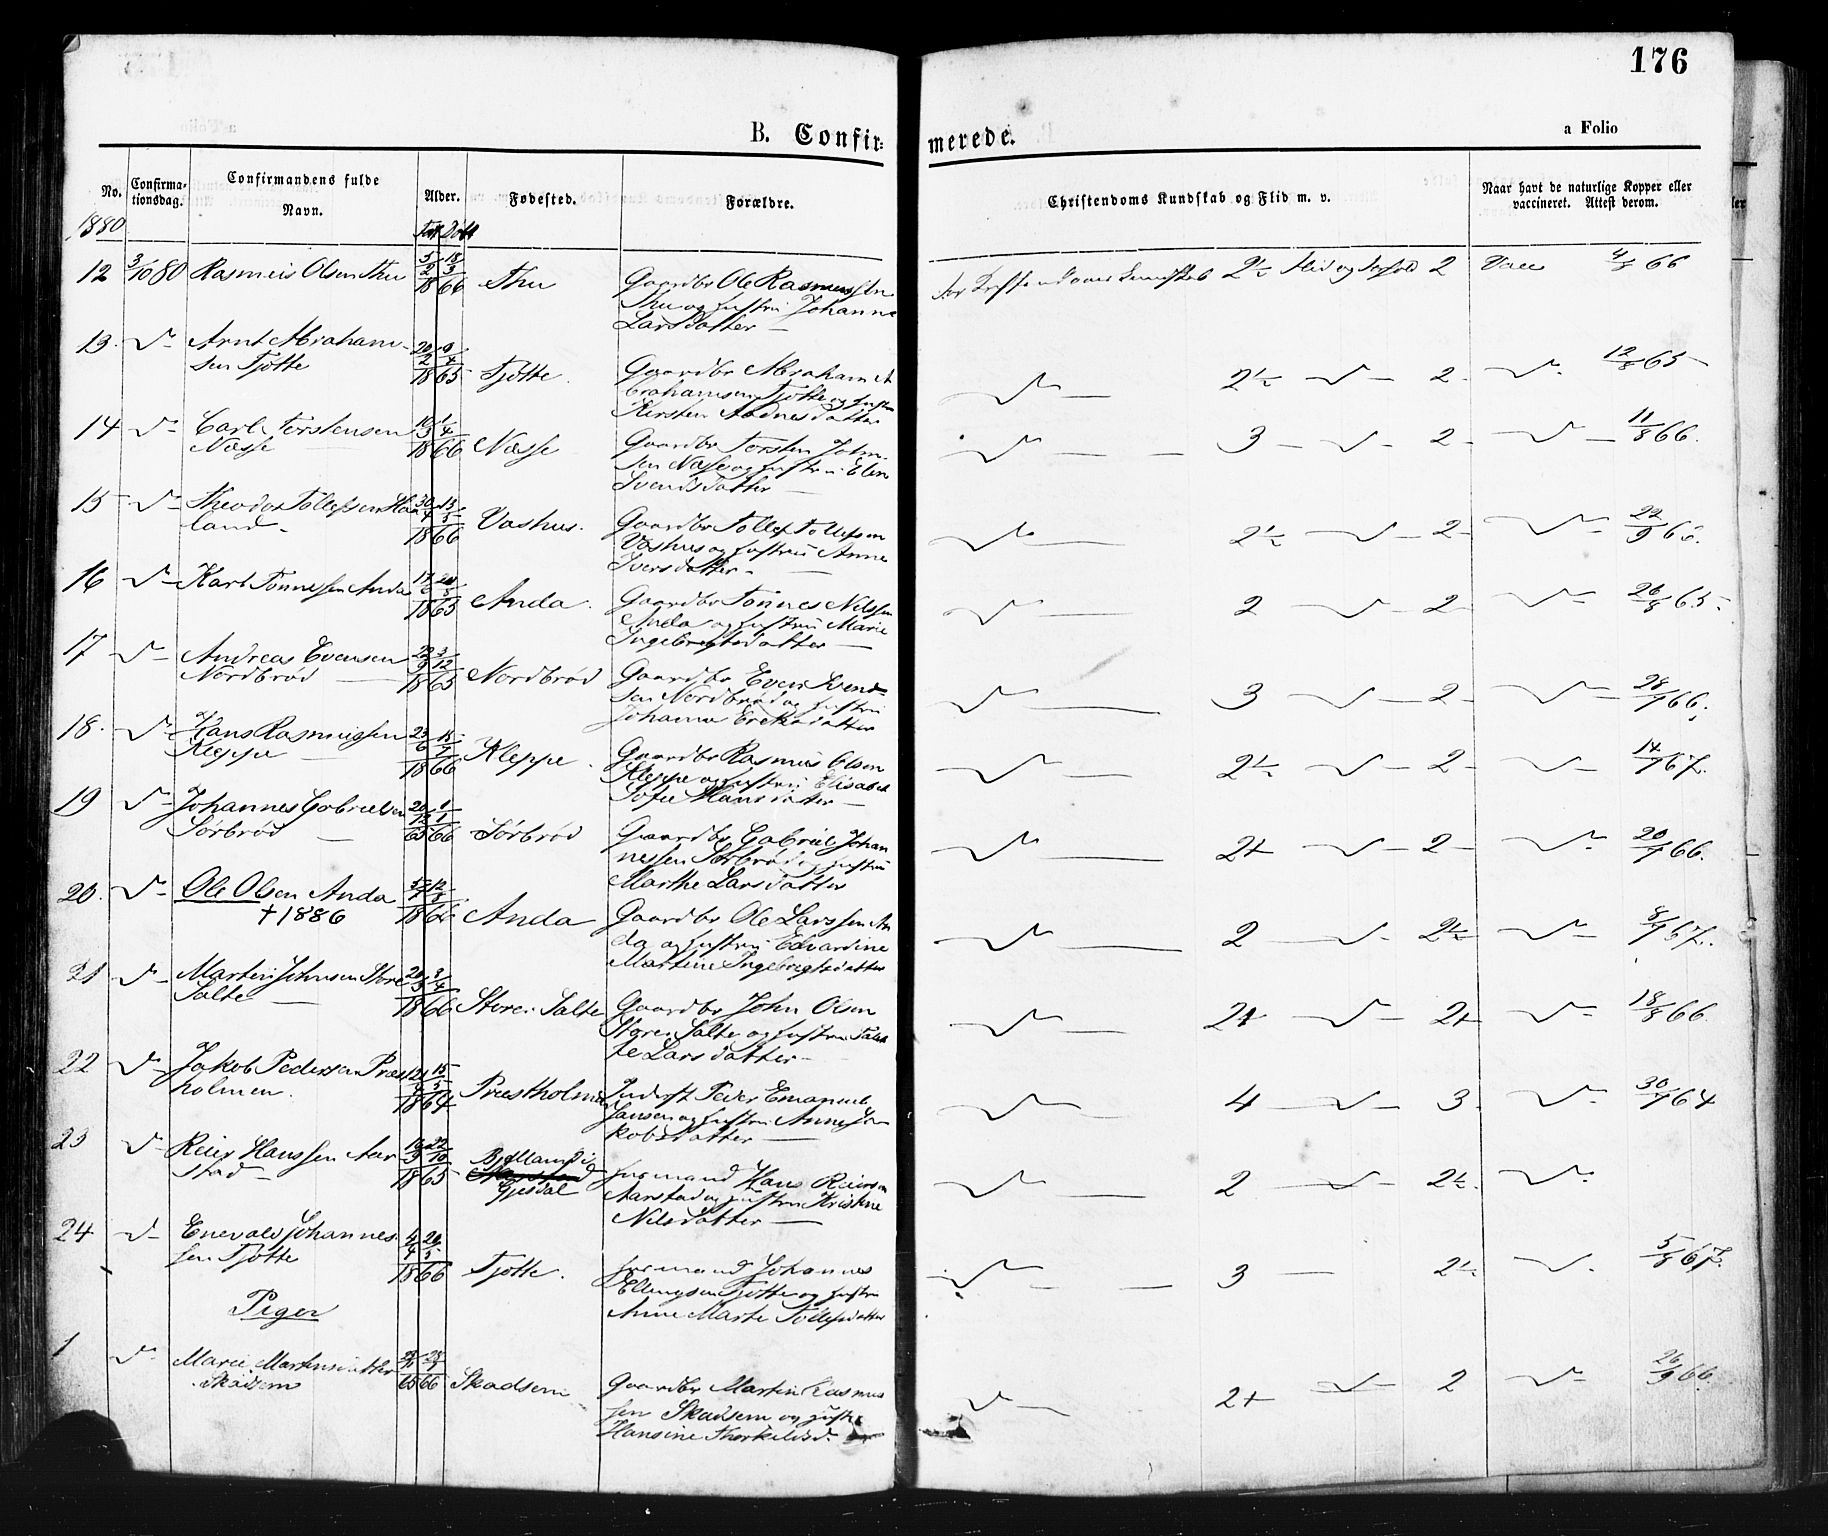 176
B. Confir=
merede.
a Folio
No.
Confirma-
tionsdag.
Confirmandens fulde
Navn.
Alder.
Fødested.
Forældre.
Christendoms Kundskab og Flid m. v.
Naar havt de naturlige Kopper eller
vaccineret. Attest derom.
1880
Født Døbt
12 3/10 80 Rasmus Olsen Thu 5/2 18/3 1866 Thu Gaardbr Ole Rasmussen
Thu og Hustru Johanne
Larsdatter
2½ Flid og Forhold 2 Vacc 4/8 66
13. Arnt Abraham-
sen Tjøtte 1865 Tjøtte. Gaardbr Abraham A
brahamsen Tjøtte og Hustru
Kirsten Aadnesdatter
2½ 2 12/8 65
14 Carl Torstensen
Næsse 1866 Næsse Gaardbr Torsten John-
sen Næsse og Hustru Elen
Svendsdatter
3 2 11/8 66.
15 Theodor Tollefsen Haa
land 30/4 13/5 1866 Vashus. Gaardbr Tollef Tollefsen
Vashus og Hustru Anne
Iversdatter
2½ 2 22/9 66.
16 Karl Tønnessen Anda 1865 Anda. Gaardbr Tønnes Nilssen
Anda og Hustru Marie
Ingebregtsdatter
2 2 26/8 65.
17 Andreas Evensen
Nordbrød 22/9 3/12 1865 Nordbrød Gaardbr Even Svend-
sen Nordbrød og Hustru
Johanna Eriksdatter
3 2 28/9 66.
18. Hans Rasmussen
Kleppe 23/6 15/7 1866 Kleppe. Gaardbr Rasmus Olsen
Kleppe og Hustru Elisabet
Sofie Hansdatter
2½ 2 14/9 67.
19 Johannes Gabrielsen
Sørbrød 20/12 1/1 65 66 Sørbrød Gaardbr Gabriel Johan
nessen Sørbrød og Hustru
Marthe Larsdatter
2+ 2 20/9 66.
20. Ole Olsen Anda
† 1886 1866 Anda Gaardbr Ole Larssen An
da og Hustru Edvardine
Martine Ingebregtsdatter
2 2½ 8/9 67.
21 Martin Johnsen Store
Salte 20/3 8/4 1866 Store Salte Gaardbr John Olsen
Store Salte og Hustru
Larsdatter
2+ 2+ 18/8 66.
22 Jakob Pedersen Præst
holmen. 15/5 1864 Præstholmen Inderst Peder Emanuel
Jansen og Hustru Anne Ja
kobsdatter
4 3. 30/9 64
23 Reier Hanssen Aar
stad 22/10 1865 Bjelland i
Gjesdal Husmand Hans Reiersen
Aarstad og Hustru Kristine
Nilsdatter
2 2½.
24 Enevald Johannes
sen Tjøtte 4/4 20/5 1866 Tjøtte. Husmand Johannes
Ellingsen Tjøtte og Hustru
Anne Marte Tollefsdatter
3 2½ 5/8 67.
Piger
1 Marie Martinsdatter
Skadsem 65 66 Skadsem Gaardbr Martin Rasmus
sen Skadsem og Hustr
Hansine Thorkildsd.
2+ 2 26/9 66.